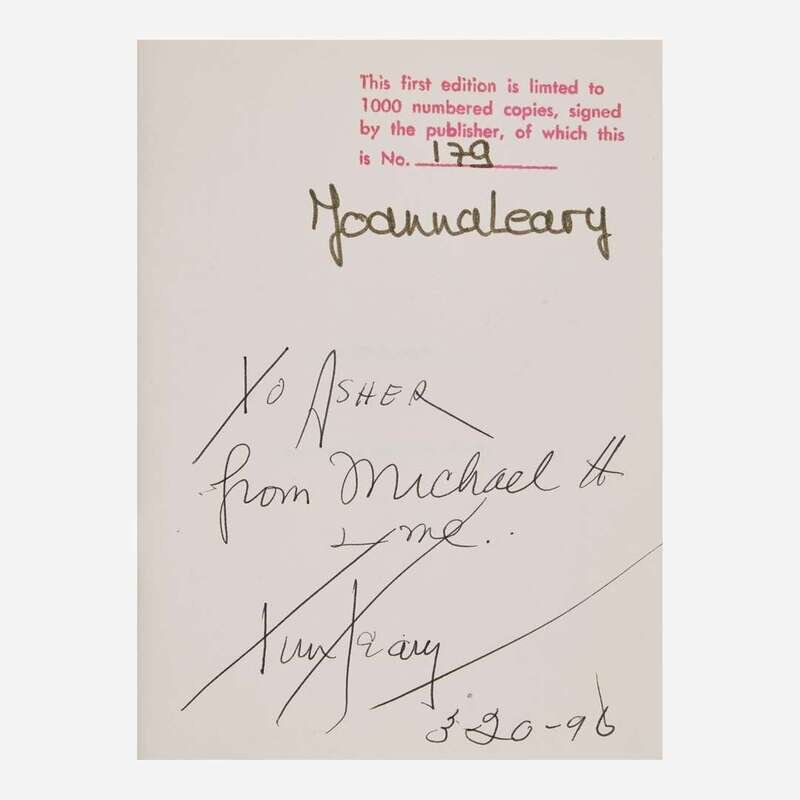 This first edition is limted to
1000 numbered copies, signed
by the publisher, of which this
is No. 179
Joanna Leary
To ASHER
from Michael H
+ me..
Tim Leary
3 20-96